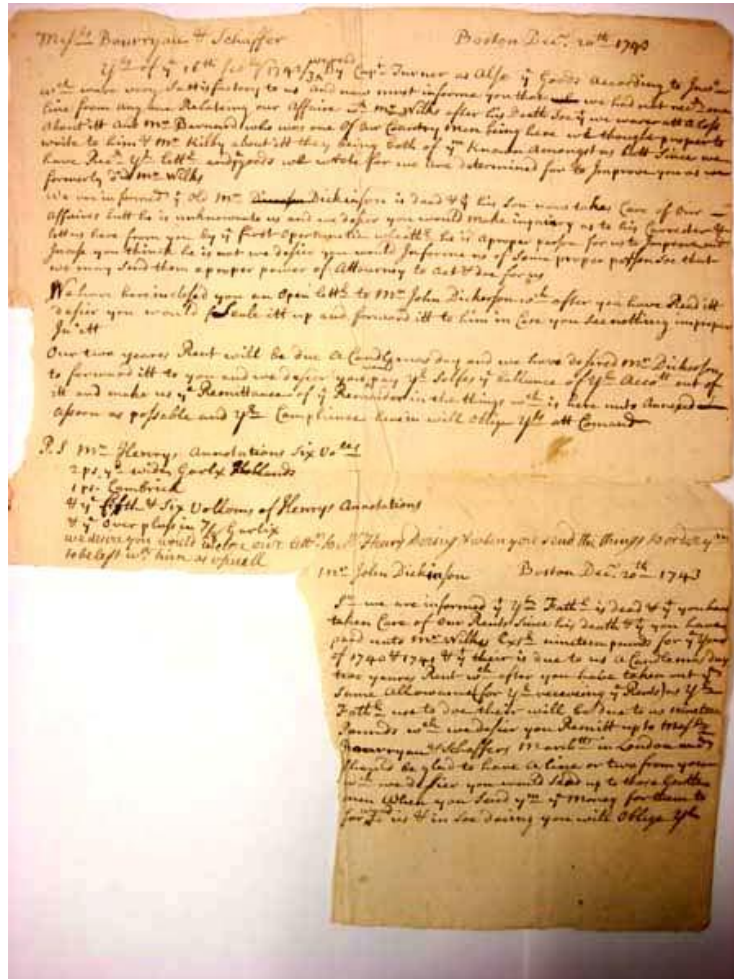 Mess.rs Bourryau & Schaffer Boston Dec.r 20th 1743
Y.rs of y.e 16th 1742/3 By Cap.t Turner as Also y.e Goods According to
w.ch were very Sattisfactory to us And now must informe you that we had not rec.d one
line from Any one Relateing our Affaire w.th M.r Wilks after his Death Soe y.t we weare att A loss
About itt And M.r Barnard who was one of Our Country men being here we thought proper to
write to him & M.r Kilby about itt they being both of y.m Known Amongst us butt Since we
have Rec.d Y.r lett.r and y.e goods we wrote for we are determined for to Improve you as we
formerly did M.r Wilks
We are informed y.t Old M.r Dickinson is dead & y.t his Son now takes Care of Our
Affaires butt he is unknowne to us and we desier you would Make inquiery as to his Carrecter &
lett us here from you by y.e first Opertunitie wheth.r he is A proper person for us to Improve and
Incase you think he is not we desier you would Informe us of Some proper person Soe that
we may Send them A proper power of Attourney to Act & doe for us
We have here inclosed you an Open lett.r to M.r John Dickerson w.ch after you have Read itt
desier you would Seale itt up and forward itt to him in Case you See nothing improper
In itt
Our two yeares Rent will be due A Candlemas day and we have desired M.r Dickerson
to forward itt to you and we desier you pay Y.r Selfes y.e ballance of Y.r Acco.tt out of
itt and make us y.e Remittance of y.e Remainder in the things w.ch is here unto Annexed
Assoon as possable and Y.r Complience herein will Oblige Y.rs att Comand
P.S M.r Henrys Annotations Six Vo
2 ps. y.d wide Garlix Hollands
1 ps. Cambrick
& y.e Fifth & Six Volloms of Henrys Annotations
& y.e Over pluss in 7/8 Garlix
we desire you would our lett.rs to M.r Henry & when you send the things to order y.m
to be left w.th him as usuall
M.r John Dickinson Boston Dec.r 20th 1743
S.r we are informed y.t Y.r Fath.r is dead & y.t you have
taken Care of Our Rents Since his death & y.t you have
paid unto M.r Wilks Ex.rs nineteen pounds for y.e Year
of 1740 & 1741 & y.t their is due to us A Candlemas day
two yeares Rent w.ch after you have taken out y.e
Same Allowance (for Y.r receiveing y.e Rents) as Y.r
Fath.r use to doe their will be due to us nineteen
Pounds w.ch we desier you Remitt up to Mess.rs
Bourryau & Schaffers March.tts in London and
should be glad to have A line or two from you
w.ch we desier you would Send up to those Gentle
men When you Send y.m y.e Money for them to
us & in Soe doeing you will Oblige Y.rs